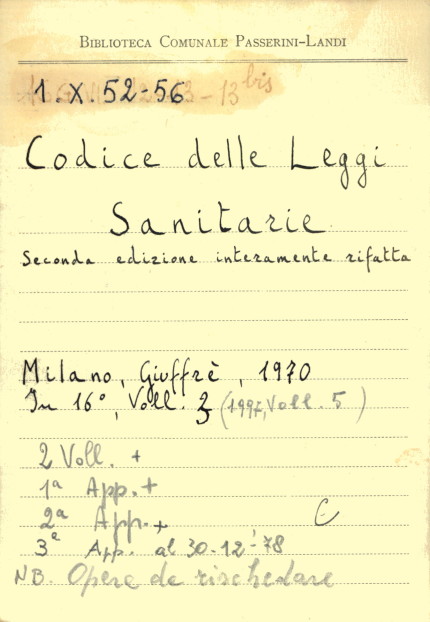 BIBLIOTECA COMUNALE PASSERINI-LANDI
1.X.52-56 - 13 bis
Codice delle Leggi
Sanitarie
Seconda edizione interamente rifatta
Milano, Giuffrè, 1970
In 16°, Voll. 3 (1997, Voll. 5)
2 Voll. +
1ª App. +
2ª App. +
C
3ª App. al 30-12-'78
NB. Opere da rischedare